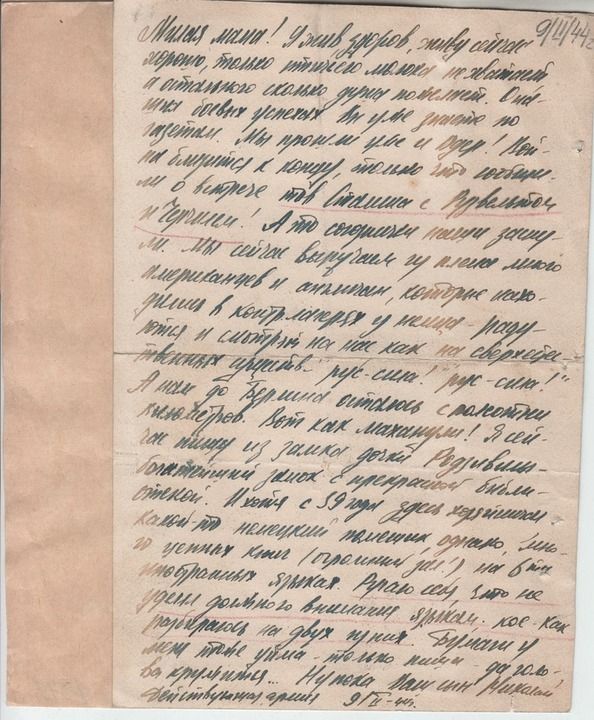 9/II/44г
Милая мама! Я жив, здоров, живу сейчас
хорошо, только птичьего молока не хватает
а остального сколько душа пожелает. О на-
ших боевых успехах Вы уже знаете по
газетам. Мы прошли уже и Одер! Вой-
на близится к концу, только что сообщи-
ли о встрече тов Сталина с Рузвельтом
и Черчилем! А то союзнички наши
Мы сейчас выручаем из плена много
американцев и англичан, которые нахо-
дились в концлагерях у немца - раду-
ются и смотрят на нас как на сверхесте-
ственных существ - "рус-сила! рус-сила!"
А нам до Берлина осталось с
километров. Вот как махнули! Я сей-
час пишу из замка дочки Радзивил-
богатейший замок с прекрасной библи-
отекой. И хотя с 39 года здесь хозяйничал
какой-то немецкий помещик, однако, мно-
го ценных книг (огромный зал!) на 6ти
иностранных языках. Ругаю себя что не
уделял должного внимания языкам. кое-как
разбираюсь на двух-. Бумаги у
меня тоже уйма - только пиши - да голо-
ва кружится... Ну пока Ваш сын Михаил
Действующая армия 9/II-44г.